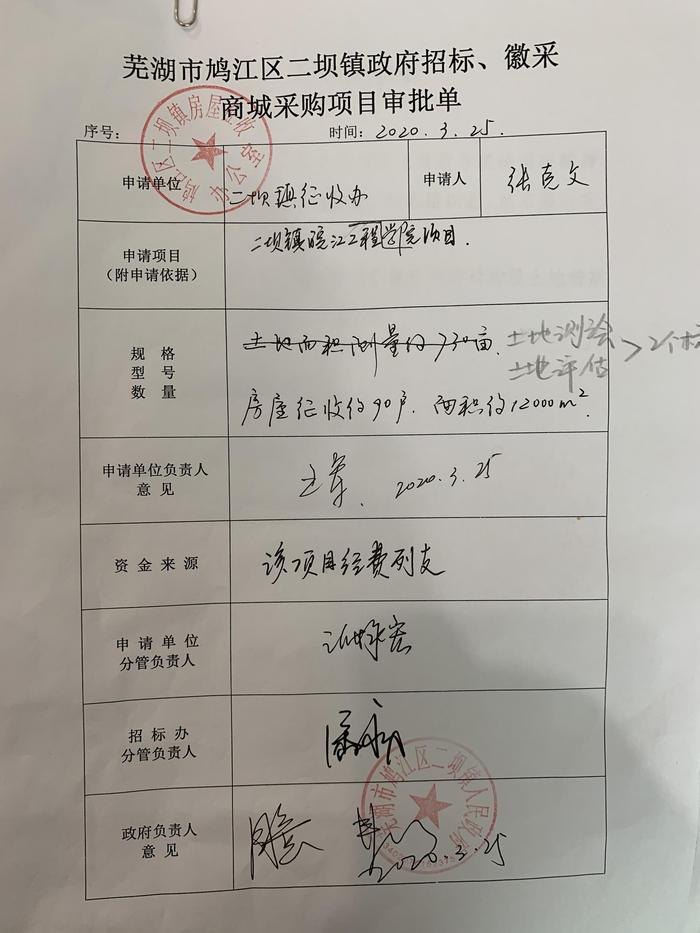 芜湖市鸠江区二坝镇政府招标、徽采
商城采购项目审批单
序号：
时间：2020.3.25.
申请单位
二坝镇征收办
申请人
张克文
申请项目
（附申请依据）
二坝镇皖江工程学院项目.
规格
型号
数量
土地面积测量约730亩.
土地测绘
土地评估
>2个标
房屋征收约90户. 面积约12000m².
申请单位负责人
意见
2020.3.25
资金来源
该项目经费列支
申请单位
分管负责人
招标办
分管负责人
政府负责人
意见
2020.3.25
芜湖市鸠江区二坝镇人民政府